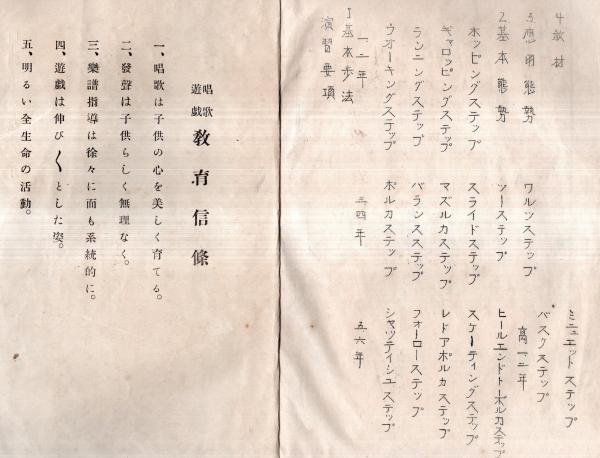 演習要項
1 基本歩法
一二年
ウオーキングステップ
ランニングステップ
ギャロッピングステップ
ホッピングステップ
2. 基本態勢
3. 應用態勢
4 教材
三四年
ポルカステップ
バランスステップ
マズルカステップ
スライドステップ
ツーステップ
ワルツステップ
五六年
シャッティシュステップ
フォーローステップ
レドアポルカステップ
スケーティングステップ
ヒールエンドトーポルカステップ
高一二年
バスクステップ
ミニュエットステップ
唱歌遊戯 教育信條
一、唱歌は子供の心を美しく育てる。
二、發聲は子供らしく無理なく。
三、樂譜指導は徐々に而も系統的に。
四、遊戯は伸び〱とした姿。
五、明るい全生命の活動。